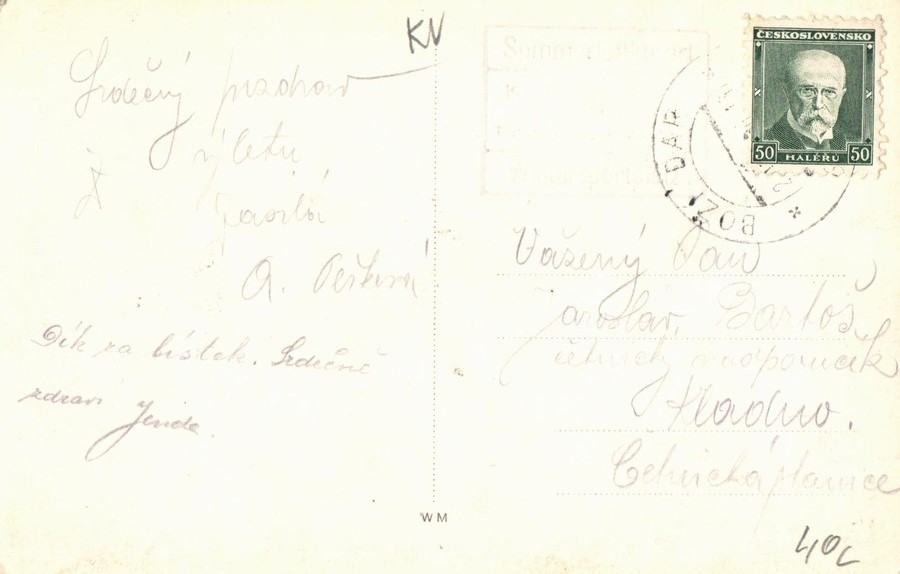 KV
Srdečný pozdrav
z výletu
zasílá
A. Pešková
Dík za lístek. Srdečně
zdraví Jenda.
WM
ČESKOSLOVENSKO
50 HALÉŘŮ 50
BOŽÍ DAR
Vážený Pan
Jaroslav Bartoš
četnický nadporučík
Kladno.
Četnická stanice
40,